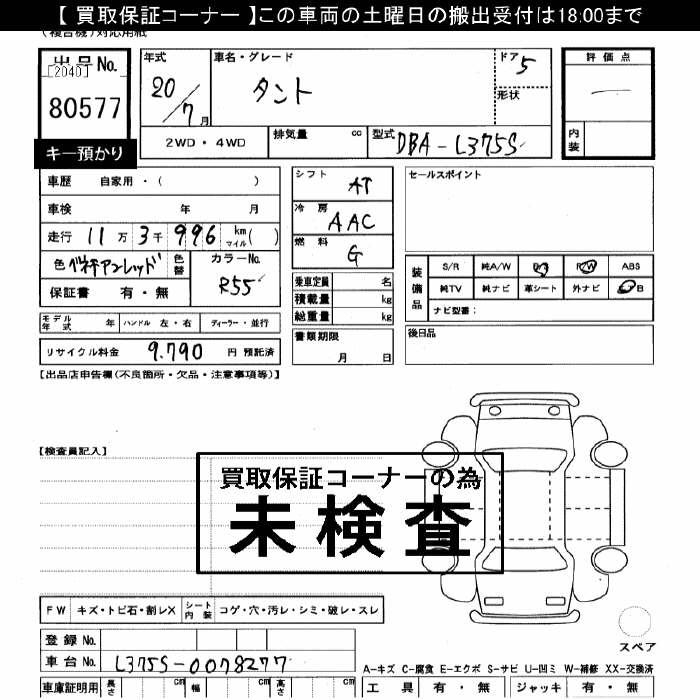 【 買取保証コーナー 】この車両の土曜日の搬出受付は18:00まで
(複合機)対応用紙
出品No.
[2040]
80577
キー預かり
年式
20/7月
車名・グレード
タント
ドア
5
形状
評価点
内装
2WD・4WD
排気量 cc
型式 DBA-L375S
車歴 自家用・( )
車検 年 月
走行 11万3千996 km マイル( )
色替
カラーNo.
R55
保証書 有・無
シフト AT
冷房 AAC
燃料 G
乗車定員 名
積載量 kg
総重量 kg
書類期限
月 日
セールスポイント
装備品
S/R 純A/W P/S P/W ABS
純TV 純ナビ 革シート 外ナビ B
ナビ型番:
後日品
モデル年式 年 ハンドル 左・右 ディーラー・並行
リサイクル料金 9.790 円 預託済
【出品店申告欄(不良箇所・欠品・注意事項等)】
【検査員記入】
買取保証コーナーの為
未検査
FW キズ・トビ石・割レX シート内装 コゲ・穴・汚レ・シミ・破レ・スレ
スペア
登録No.
車台No. L375S-0078277
A-キズ C-腐食 E-エクボ S-サビ U-凹ミ W-補修 XX-交換済
車庫証明用 長さ cm 幅 cm 高さ cm
工具 有・無 ジャッキ 有・無